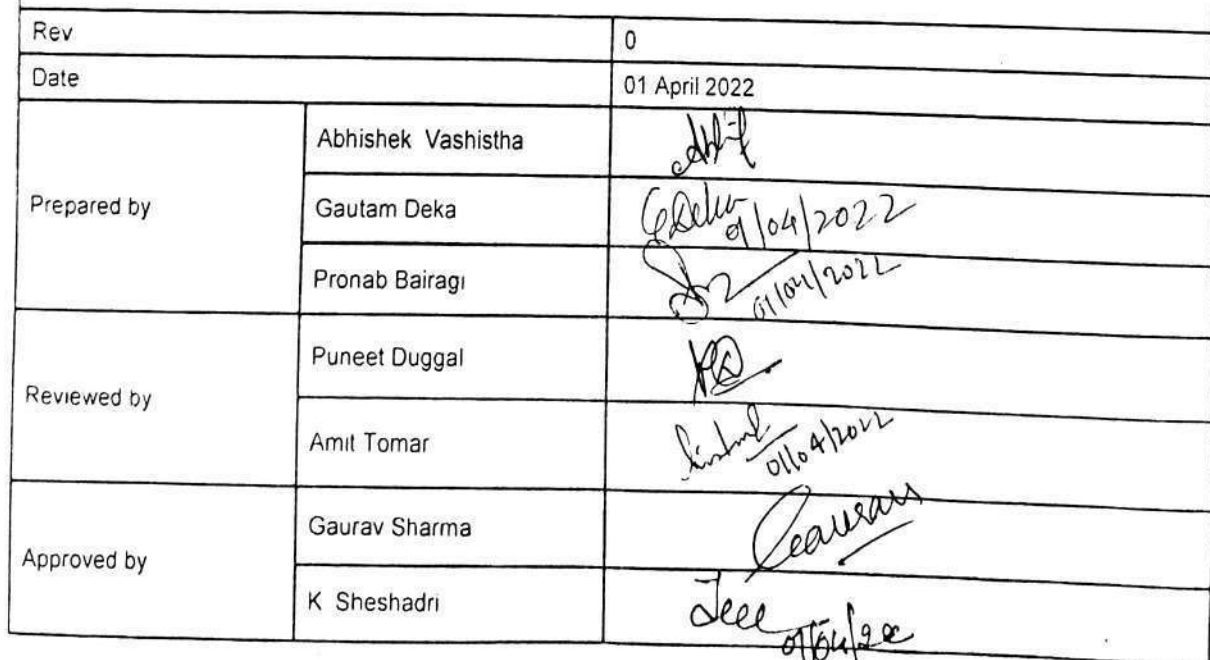 Rev 0
Date 01 April 2022
Prepared by
Abhishek Vashistha
Gautam Deka GDeka 01/04/2022
Pronab Bairagi 01/04/2022
Reviewed by
Puneet Duggal
Amit Tomar 01/04/2022
Approved by
Gaurav Sharma Gaurav
K Sheshadri 01/04/22